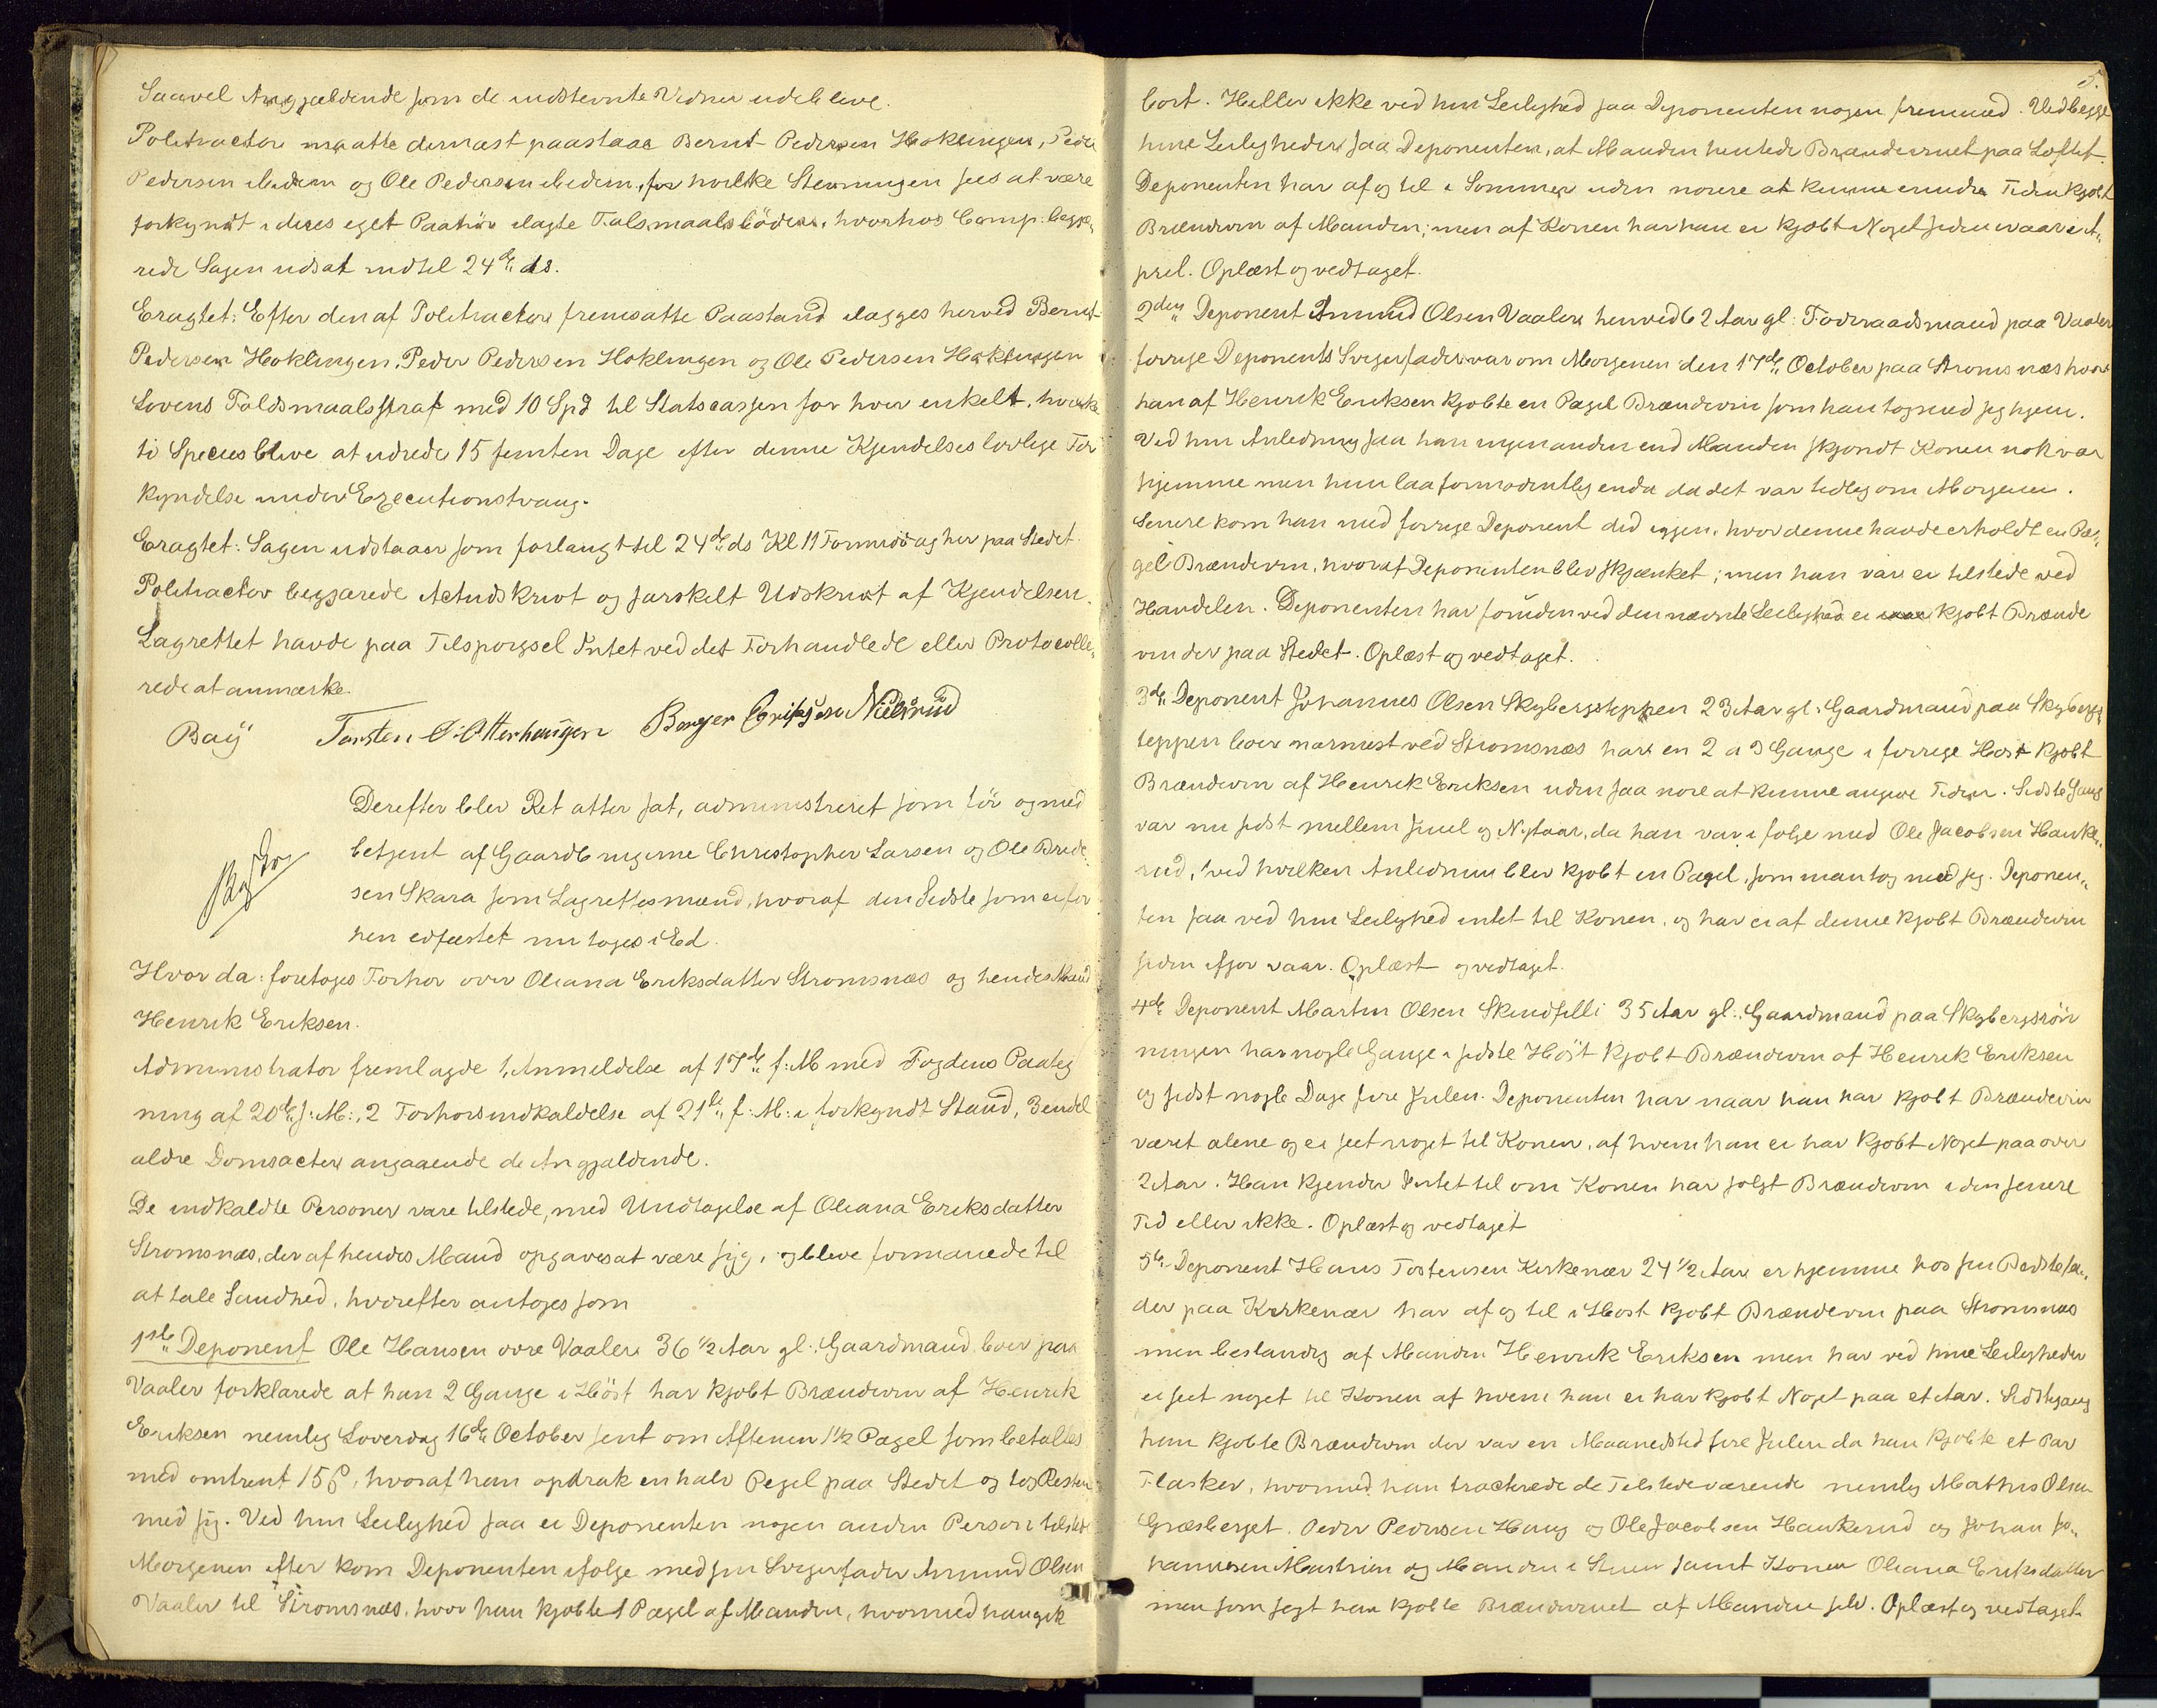 Saavel Angjældende som de indstevnte Vidner udebleve.
Politiactor maatte dernæst paastaae Bernt Pedersen Hoklingen, Peder
Pedersen ibidem og Ole Pedersen ibidem, for hvilke Stevningen sees at være
forkyndt i deres eget Paahör ilagte Falsmaalsböder, hvorhos Comp: begjæ„
rede Sagen udsat indtil 24de ds.
Eragtet: Efter den af Politiactor fremsatte Paastand ilægges herved Bernt
Pedersen Hoklingen, Peder Pedersen Hoklingen og Ole Pedersen Hoklingen
Lovens Faldsmaalsstraf med 10 Spd til Statscassen for hver enkelt, hvilke
ti Species blive at udrede 15 femten Dage efter denne Kjendelses lovlige For
kyndelse under Executionstvang.
Eragtet: Sagen udstaaer som forlangt til 24de ds Kl 11 Formiddag her paa Stedet.
Politiactor begjærede Actudskrivt og særskilt Udskrivt af Kjendelsen.
Lagrettet havde paa Tilspørgsel Intet ved det Forhandlede eller Protocolle„
rede at anmærke.
Baÿ Torsten Otterhaugen Berger Erichsen Nilsrud
Derefter blev Ret atter sat, administreret som för og med
betjent af Gaardbrugerne Christopher Larsen og Ole Brede
sen Skara som Lagrettesmænd, hvoraf den Sidste som ei för
hen edfæstet nu toges i Ed.
Hvor da: foretoges Forhør over Oleana Eriksdatter Stromsnæs og hendes Mand
Henrik Eriksen.
Administrator fremlagde 1, Anmeldelse af 17de f: M med Fogdens Paateg
ning af 20de f: M:, 2 Forhørsindkaldelse af 21de f: M: i forkyndt Stand, 3 endel
ældre Domsacter angaaende de Angjældende.
De indkaldte Personer vare tilstede, med Undtagelse af Oleana Eriksdatter
Stromsnæs, der af hendes Mand opgaves at være syg, og bleve formanede til
at tale Sandhed, hvorefter antoges som
1ste Deponent Ole Hansen øvre Vaaler 36 1/2 Aar gl., Gaardmand, boer paa
Vaaler forklarede at han 2 Gange i Höst har kjøbt Brændevin af Henrik
Eriksen nemlig Løverdag 16de October sent om Aftenen 1 1/2 Pægel som betaltes
med omtrent 15 ß, hvoraf han opdrak en halv Pegel paa Stedet og tog Resten
med sig. Ved hin Leilighed saa ei Deponenten nogen anden Person tilstede
Morgenen efter kom Deponenten ifølge med sin Svigerfader Amund Olsen
Vaaler til Stromsnæs, hvor han kjøbte 1 Pægel af Manden, hvormed han gik
5.
bort. Heller ikke ved hin Leilighed saa Deponenten nogen fremmed. Ved begge
hine Leiligheder saa Deponenten, at Manden hentede Brændevinet paa Loftet.
Deponenten har af og til i Sommer uden nøiere at kunne erindre Tiden kjøbt
Brændevin af Manden; men af Konen har han ei kjøbt Noget siden ivaar i A„
pril. Oplæst og vedtaget.
2den Deponent Amund Olsen Vaaler henved 62 Aar gl: Føderaadsmand paa Vaaler
forrige Deponents Svigerfader var om Morgenen den 17de October paa Stroms næs hvor
han af Henrik Eriksen kjøbte en Pægel Brændevin som han tog med sig hjem.
Ved hin Anledning saa han ingen anden end Manden skjøndt Konen nok var
hjemme men hun laa formodentlig endu da det var tidlig om Morgenen.
Senere kom han med forrige Deponent did igjen, hvor denne havde erholdt en Pæ„
gel Brændevin, hvoraf Deponenten blev skjænket; men han var ei tilstede ved
Handelen. Deponenten har foruden ved den nævnte Leilighed ei kjøbt Brænde
vin der paa Stedet. Oplæst og vedtaget.
3de Deponent Johannes Olsen Skybergsteppen 23 Aar gl: Gaardmand paa Skybergs
teppen boer nærmest ved Stromsnæs har en 2 a 3 Gange i forrige Høst kjøbt
Brændevin af Henrik Eriksen uden saa nøie at kunne angive Tiden. Sidste Gang
var nu sidst mellem Juul og Nytaar, da han var i følge med Ole Jacobsen Hauke„
rud, ved hvilken Anledning blev kjøbt en Pægel, som man tog med sig. Deponen„
ten saa ved hin Leilighed intet til Konen, og har ei af denne kjøbt Brændevin
siden ifjor vaar. Oplæst og vedtaget.
4de Deponent Martin Olsen Skindfelli 35 Aar gl., Gaardmand paa Skybergsrön
ningen har nogle Gange i sidste Höst kjøbt Brændevin af Henrik Eriksen
og sidst nogle Dage före Julen. Deponenten har naar han har kjøbt Brændevin
været alene og ei seet noget til Konen, af hvem han ei har kjøbt Noget paa over
2 Aar. Han kjender Intet til om Konen har solgt Brændevin i den senere
Tid eller ikke. Oplæst og vedtaget
5te Deponent Hans Tostensen Kirkenær 24 1/2 Aar er hjemme hos sin Bedstefa„
der paa Kirkenær har af og til i Høst kjøbt Brændevin paa Stromsnæs
men bestandig af Manden Henrik Eriksen men har ved hine Leiligheder
ei seet noget til Konen af hvem han ei har kjøbt Noget paa et Aar. Sidstegang
han kjøbte Brændevin der var en Maanedstid före Julen da han kjøbte et Par
Flasker, hvormed han tracterede de Tilstedeværende nemlig Mathis Olsen
Græsberget, Peder Pedersen Haug og Ole Jacobsen Haukerud og Johan Jo„
hannesen Mastrien og Manden i Stuen samt Konen Oleana Eriksdatter
men som sagt han kjøbte Brændevinet af Manden selv. Oplæst og vedtaget.